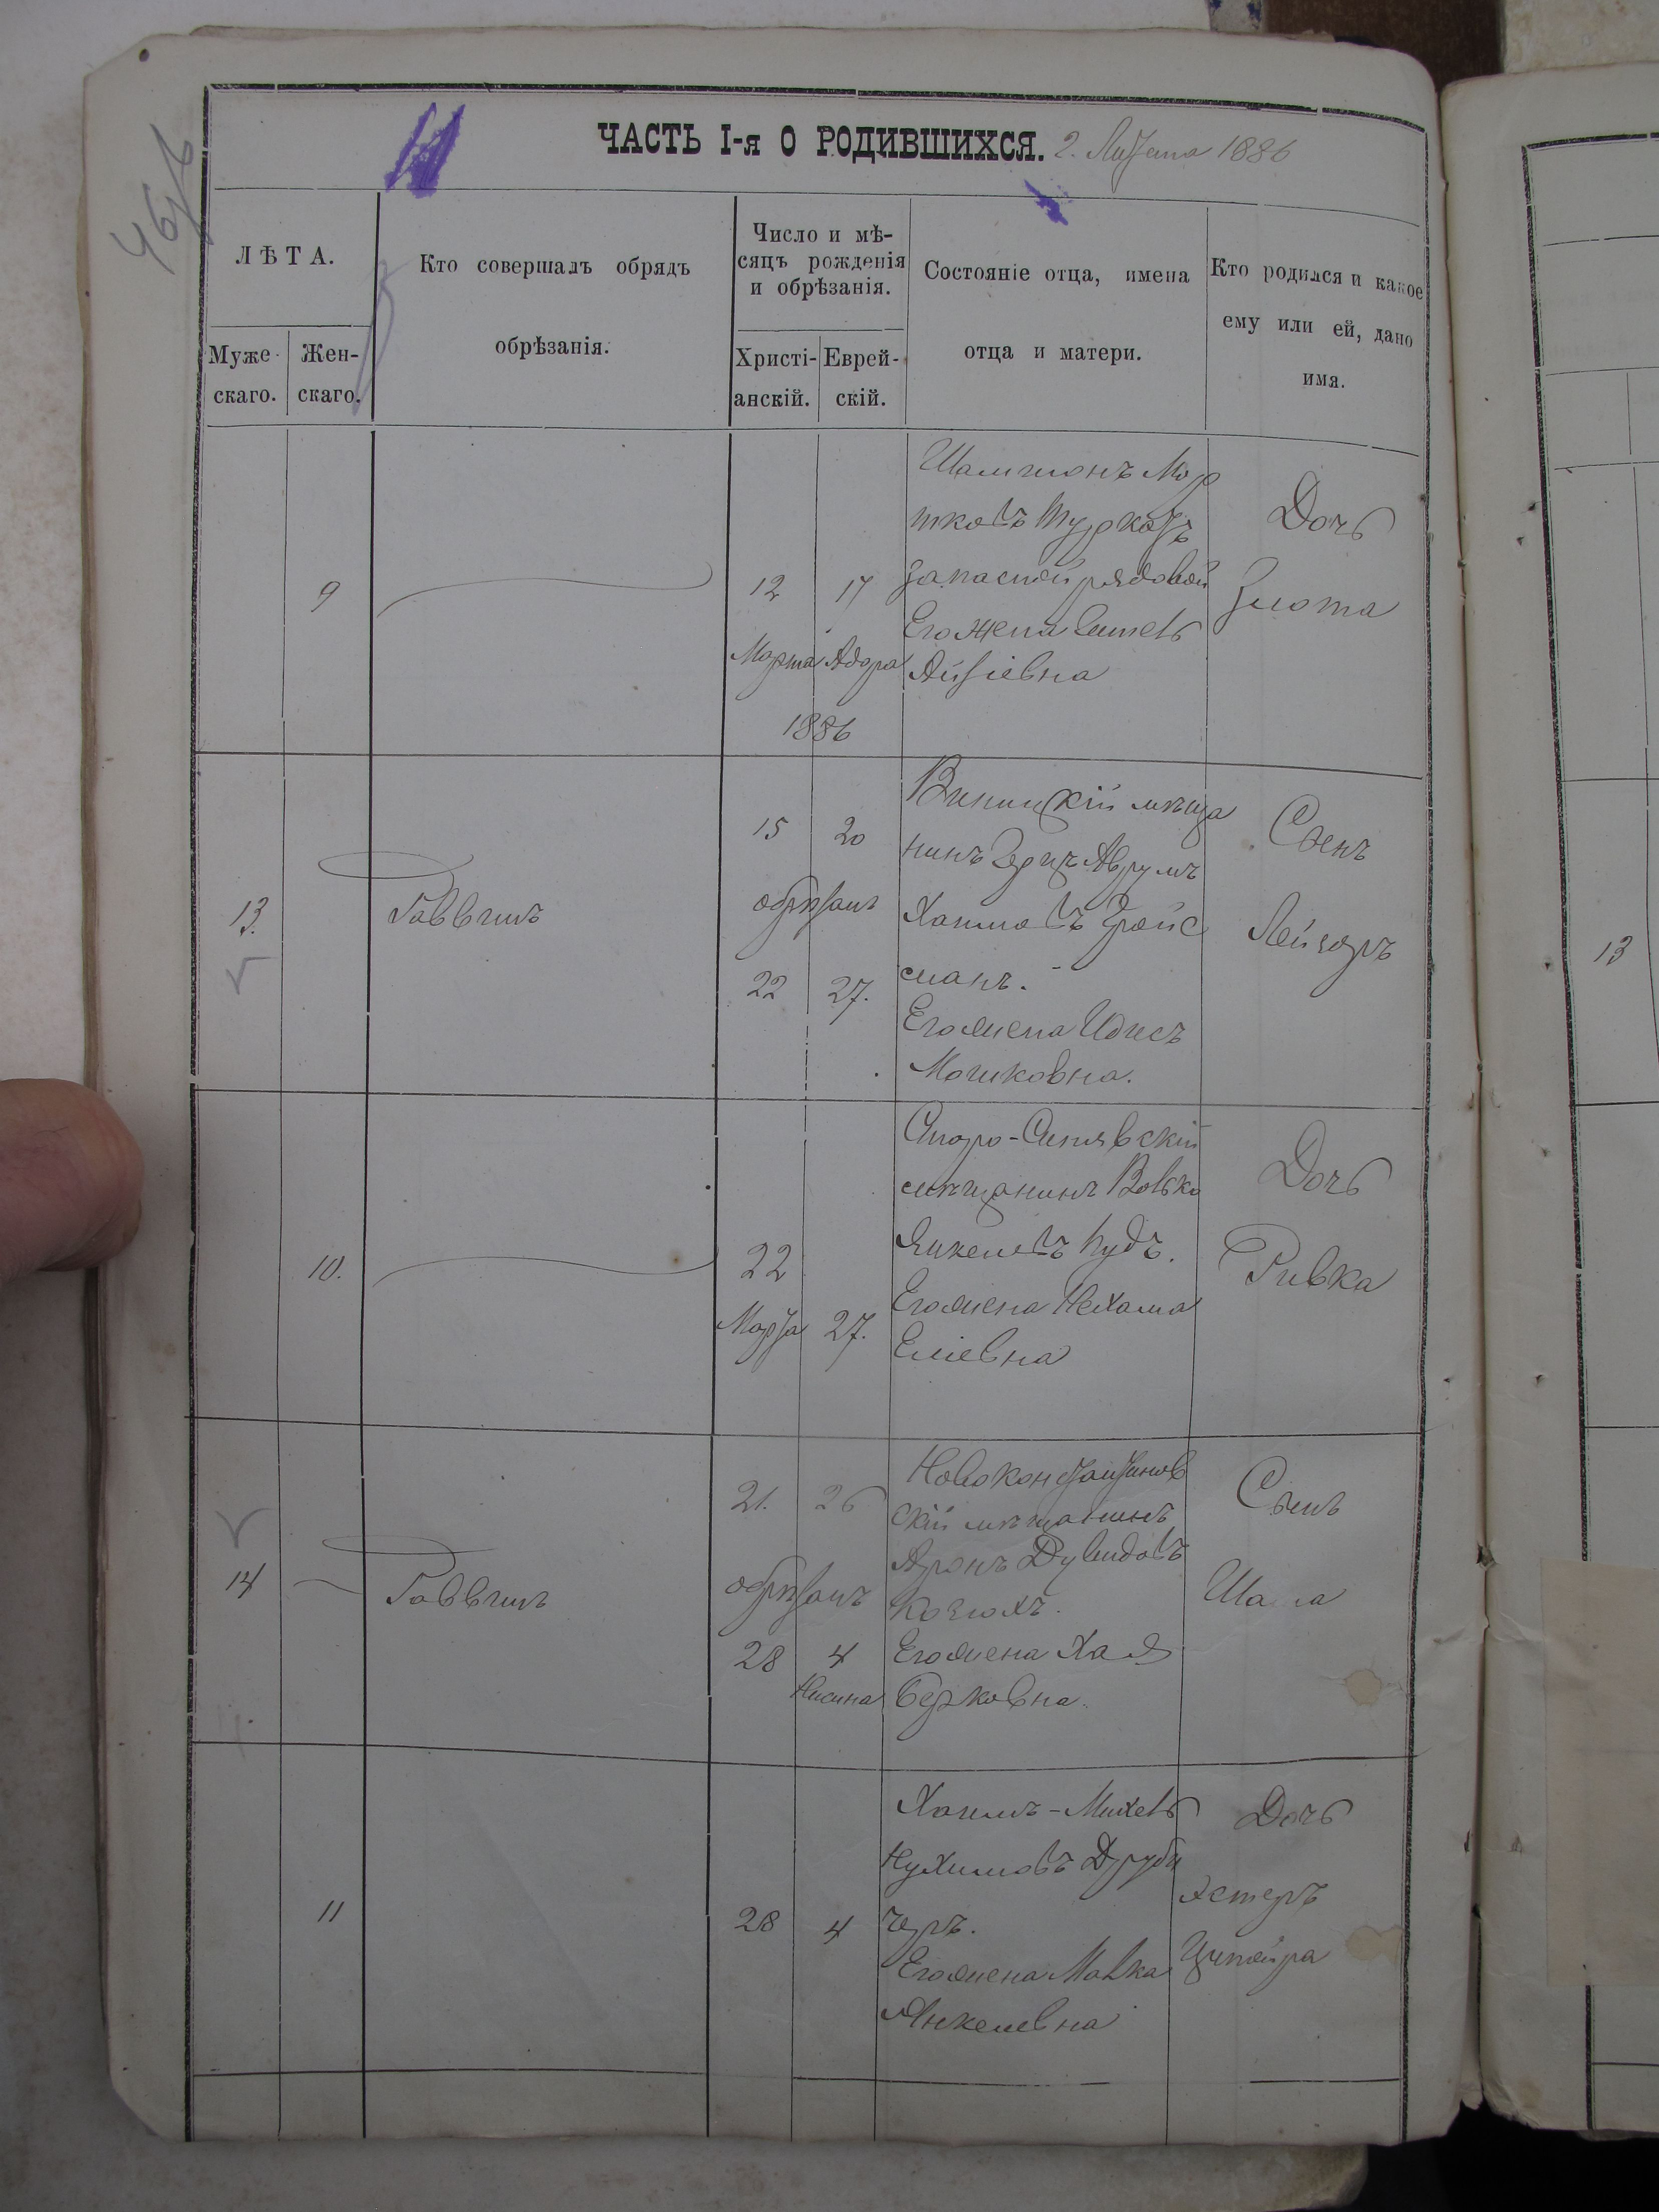 ЧАСТЬ I-я О РОДИВШИХСЯ. 2. 1886
ЛѢТА.
Муже-
скаго.
Жен-
скаго.
Кто совершалъ обрядъ
обрѣзанія.
Число и мѣ-
сяцъ рожденія
и обрѣзанія.
Христі-
анскій.
Еврей-
скій.
Состояніе отца, имена
отца и матери.
Кто родился и какое
ему или ей, дано
имя.
9
12
Марта
17
Адара
1886
Мор
тковъ Турковъ
запасной рядовой
Его жена
Айзіевна
Дочь
Злота
13.
Раввинъ
15
20
обрѣзанъ
22
27.
Винницкій мѣща
нинъ Герцъ Аврумъ
Хаимовъ Гройс
манъ.
Его жена Идисъ
Мошковна.
Сынъ
Лейзеръ
10.
22
Марта
27.
Старо-Синявскій
мѣщанинъ Волько
Янкелевъ
Его жена Нехама
Еліевна
Дочь
Ривка
14
Раввинъ
21.
26
обрѣзанъ
28
4
Нисана
Новоконстантинов
скій мѣщанинъ
Аронъ Дувидовъ
Его жена Хая
Берковна.
Сынъ
11
28
4
Хаимъ-Михель
Нухимовъ Друби
черъ.
Его жена Малка
Янкелевна
Дочь
Эстеръ
Ципойра
13